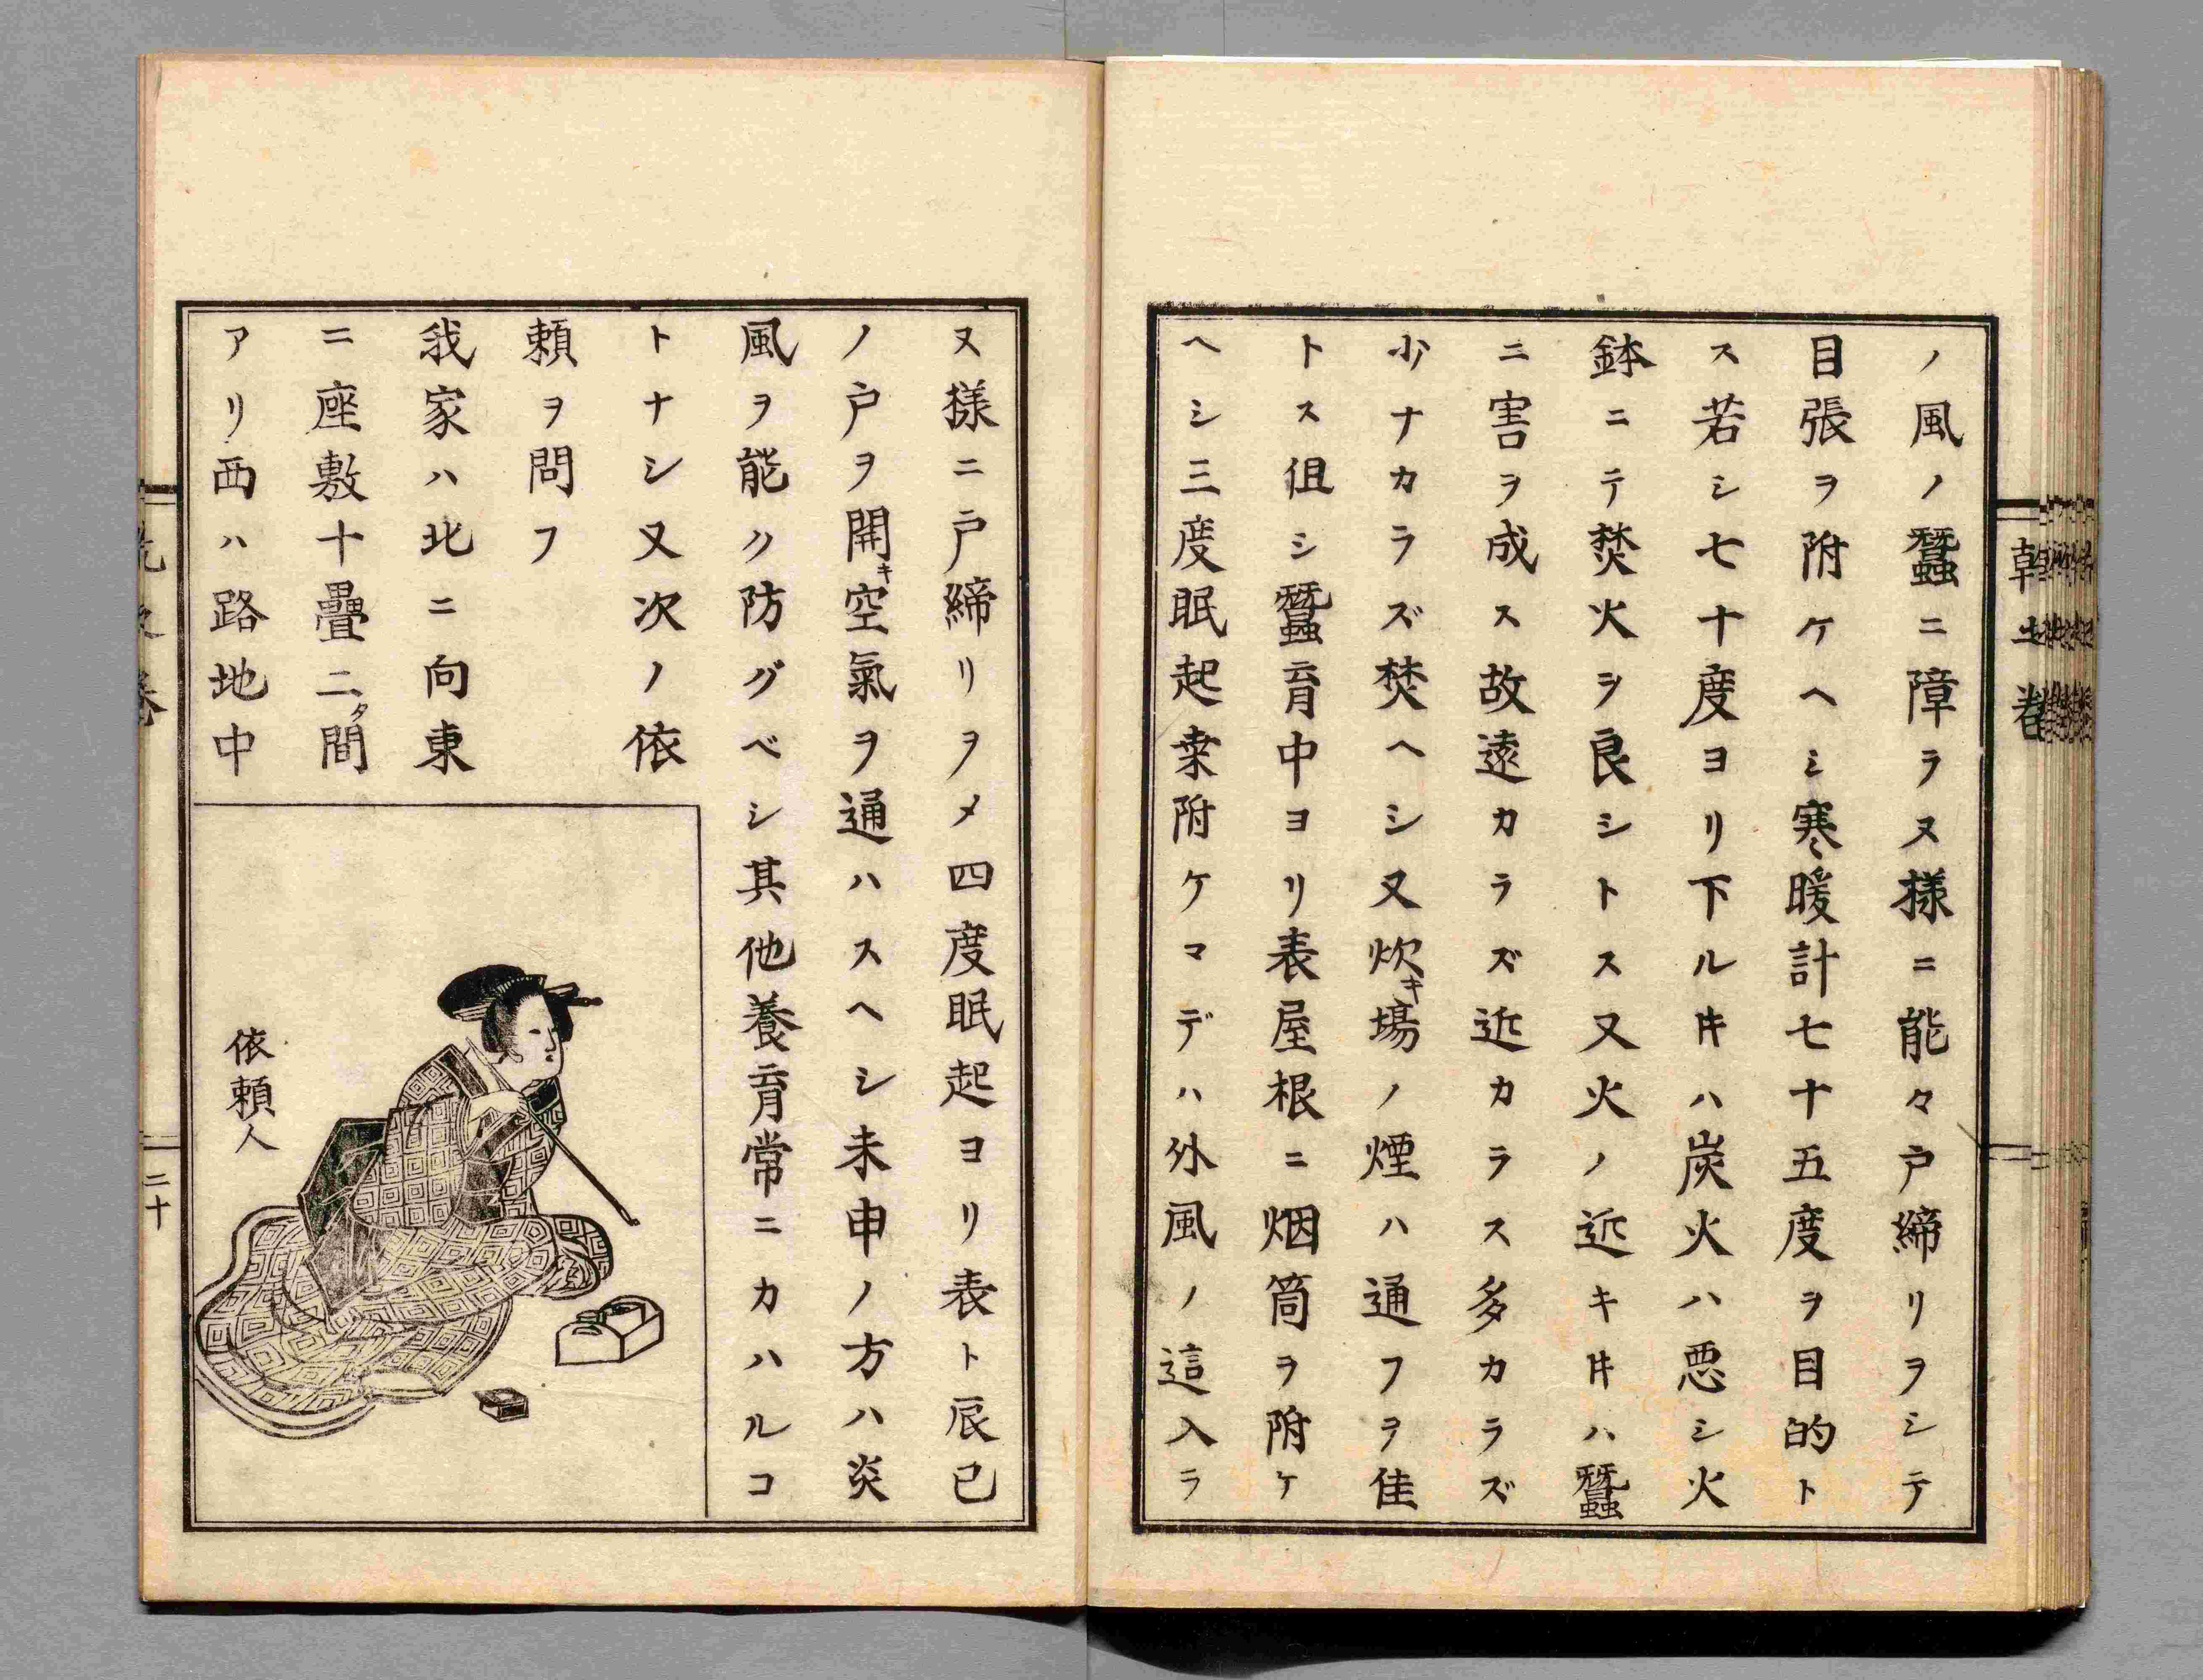 ノ風ノ蠶ニ障ラヌ様ニ能々戸締リヲシテ
目張ヲ附ケヘシ寒暖計七十五度ヲ目的ト
ス若シ七十度ヨリ下ルキハ炭火ハ悪シ火
鉢ニテ焚火ヲ良シトス又火ノ近キキハ蠶
ニ害ヲ成ス故遠カラズ近カラス多カラズ
少ナカラズ焚ヘシ又炊キ場ノ煙ハ通フヲ佳
トス徂シ蠶育中ヨリ表屋根ニ烟筒ヲ附ケ
ヘシ三度眠起桒附ケマデハ外風ノ這入ラ
ヌ様ニ戸締リヲメ四度眠起ヨリ表ト辰巳
ノ戸ヲ開キ空氣ヲ通ハスヘシ未申ノ方ハ炎
風ヲ能ク防グベシ其他養育常ニカハルコ
トナシ又次ノ依
頼ヲ問フ
我家ハ北ニ向東
ニ座敷十疊二タ間
アリ西ハ路地中
依頼人
二十